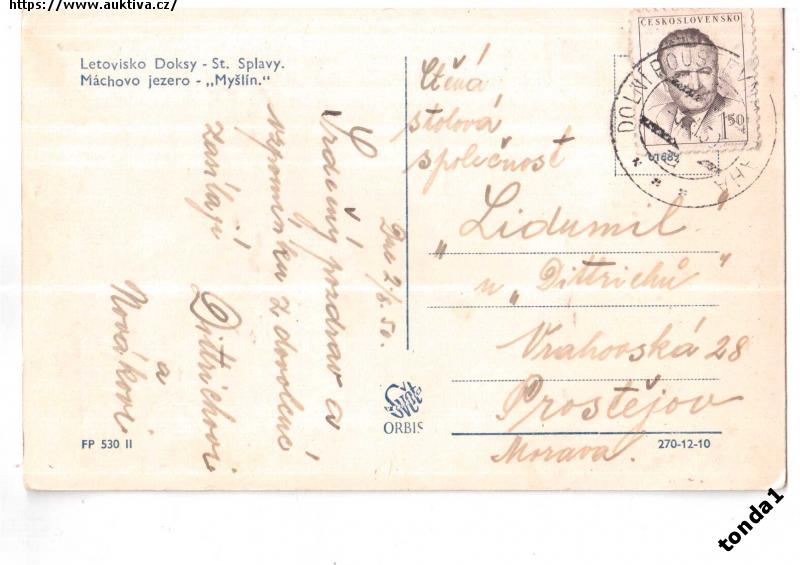 https://www.auktiva.cz/
Letovisko Doksy - St. Splavy.
Máchovo jezero - „Myšlín.“
ČESKOSLOVENSKO
1.50
DOLNÍ ROUS
Dne 2/6 50.
Srdečný pozdrav a
vzpomínku z dovolené
zasílají Dittrichovi
a
Novákovi
Ctěná
stolová
společnost
„Lidumil“
u „Dittrichů“
Vrahovská 28
Prostějov
Morava.
Svět
ORBIS
FP 530 II
270-12-10
tonda1